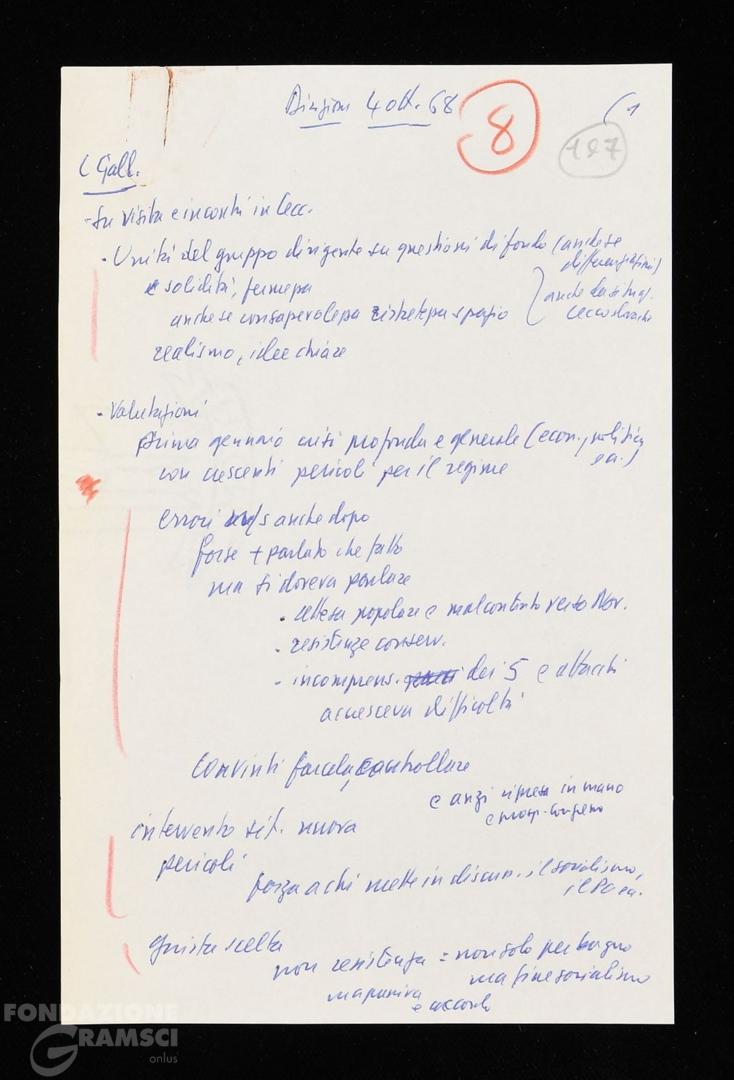 Direzione 4 ott. 68 8 (1
127
C Gall.
- Su visita e incontri in Cecc.
- Unità del gruppo dirigente su questioni di fondo (anche se
differenziazioni)
e solidità, fermezza
anche se consapevolezza ristrettezza spazio
anche da sit. mag.
cecoslovacche
realismo, idee chiare
- Valutazioni
prima gennaio crisi profonda e generale (econ., politica
ecc.)
con crescenti pericoli per il regime
errori anche dopo
forse + parlato che fatto
ma si doveva parlare
- attesa popolare e malcontento verso Nov.
- resistenze conserv.
- incomprens. dei 5 e attacchi
accresceva difficoltà
Convinti farcela, controllare
e anzi ripresa in mano
intervento sit. nuova
pericoli
forza a chi mette in discuss. il socialismo,
il PC ecc.
giusta scelta
non resistenza = non solo per bagno
ma fine socialismo
ma passiva
e accordo
FONDAZIONE
GRAMSCI
onlus